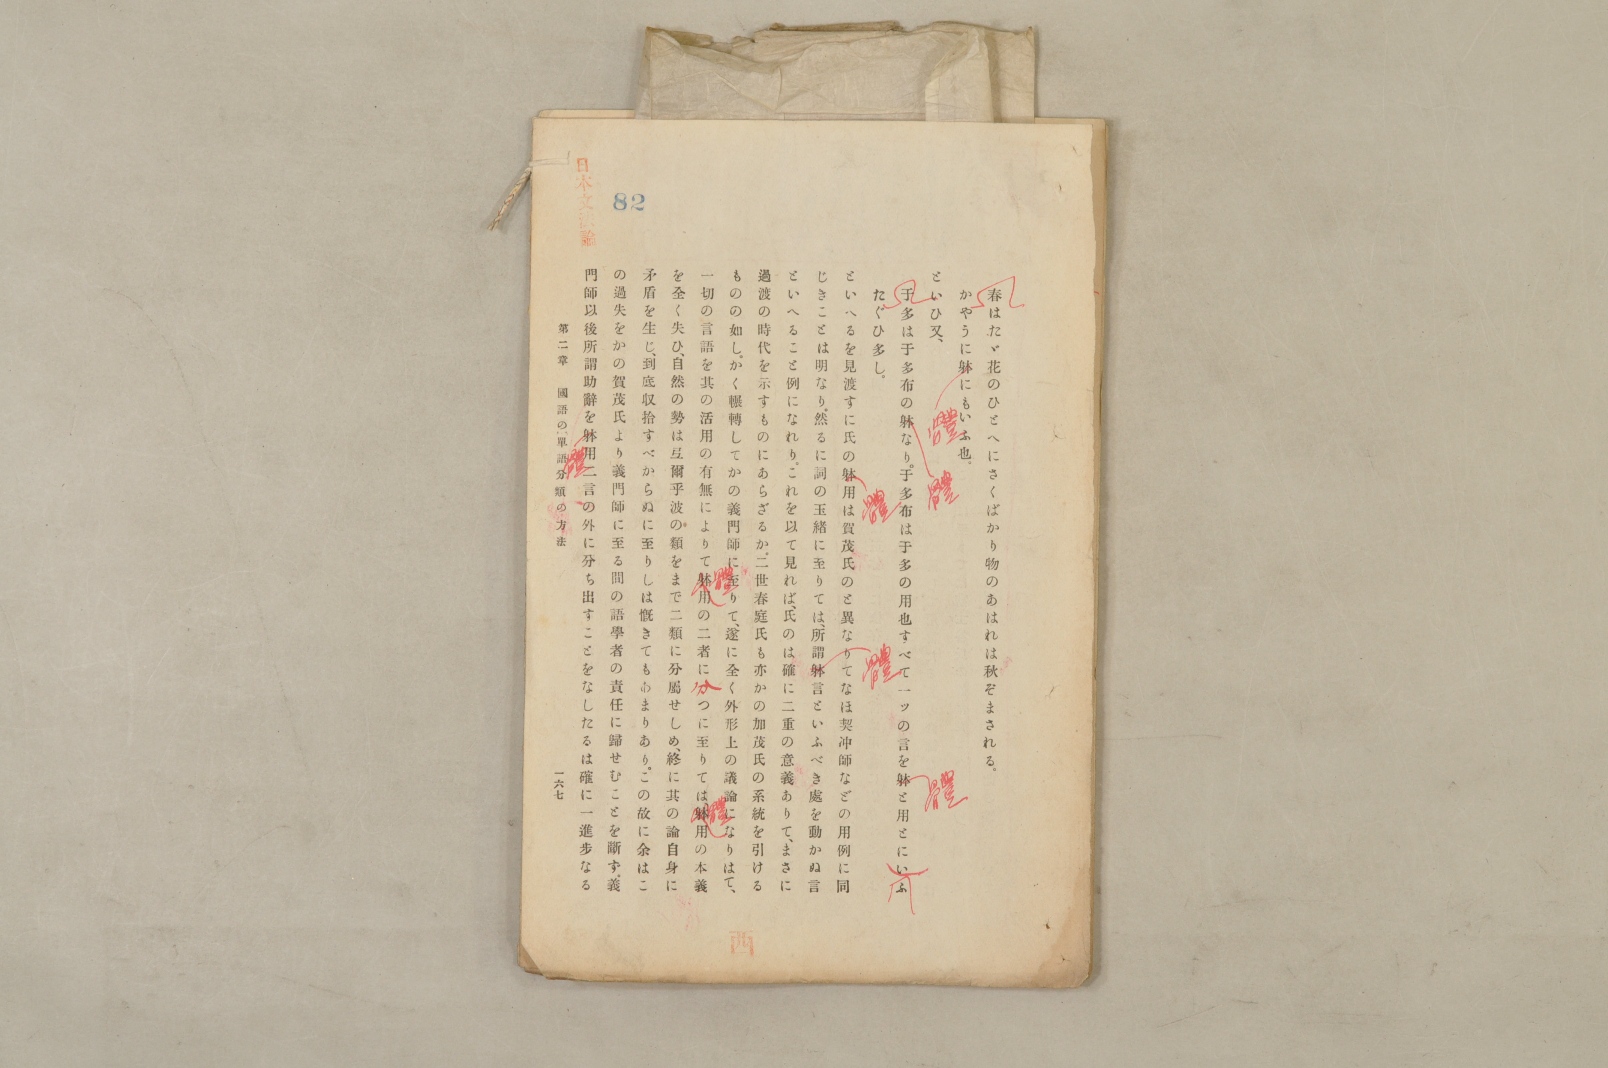 日本文法論
82
春はたゞ花のひとへにさくばかり物のあはれは秋ぞまされる。
かやうに躰にもいふ也。
といひ又、
于多は于多布の躰なり。于多布は于多の用也すべて一ッの言を躰と用とにいふ
たぐひ多し。
といへるを見渡すに氏の躰用は賀茂氏のと異なりてなほ契冲師などの用例に同
じきことは明なり。然るに詞の玉緒に至りては、所謂躰言といふべき處を動かぬ言
といへること例になれり。これを以て見れば、氏のは確に二重の意義ありて、まさに
過渡の時代を示すものにあらざるか。二世春庭氏も亦かの加茂氏の系統を引ける
ものの如し。かく輾轉してかの義門師に至りて、遂に全く外形上の議論になりはて、
一切の言語を其の活用の有無によりて躰用の二者に分つに至りては躰用の本義
を全く失ひ、自然の勢は弖爾乎波の類をまで二類に分屬せしめ、終に其の論自身に
矛盾を生じ、到底収拾すべからぬに至りしは慨きてもあまりあり。この故に余はこ
の過失をかの賀茂氏より義門師に至る間の語學者の責任に歸せむことを斷ず。義
門師以後所謂助辭を躰用二言の外に分ち出すことをなしたるは確に一進步なる
第二章 國語の單語分類の方法
一六七
體
體
體
體
體
體
體
體
分
西